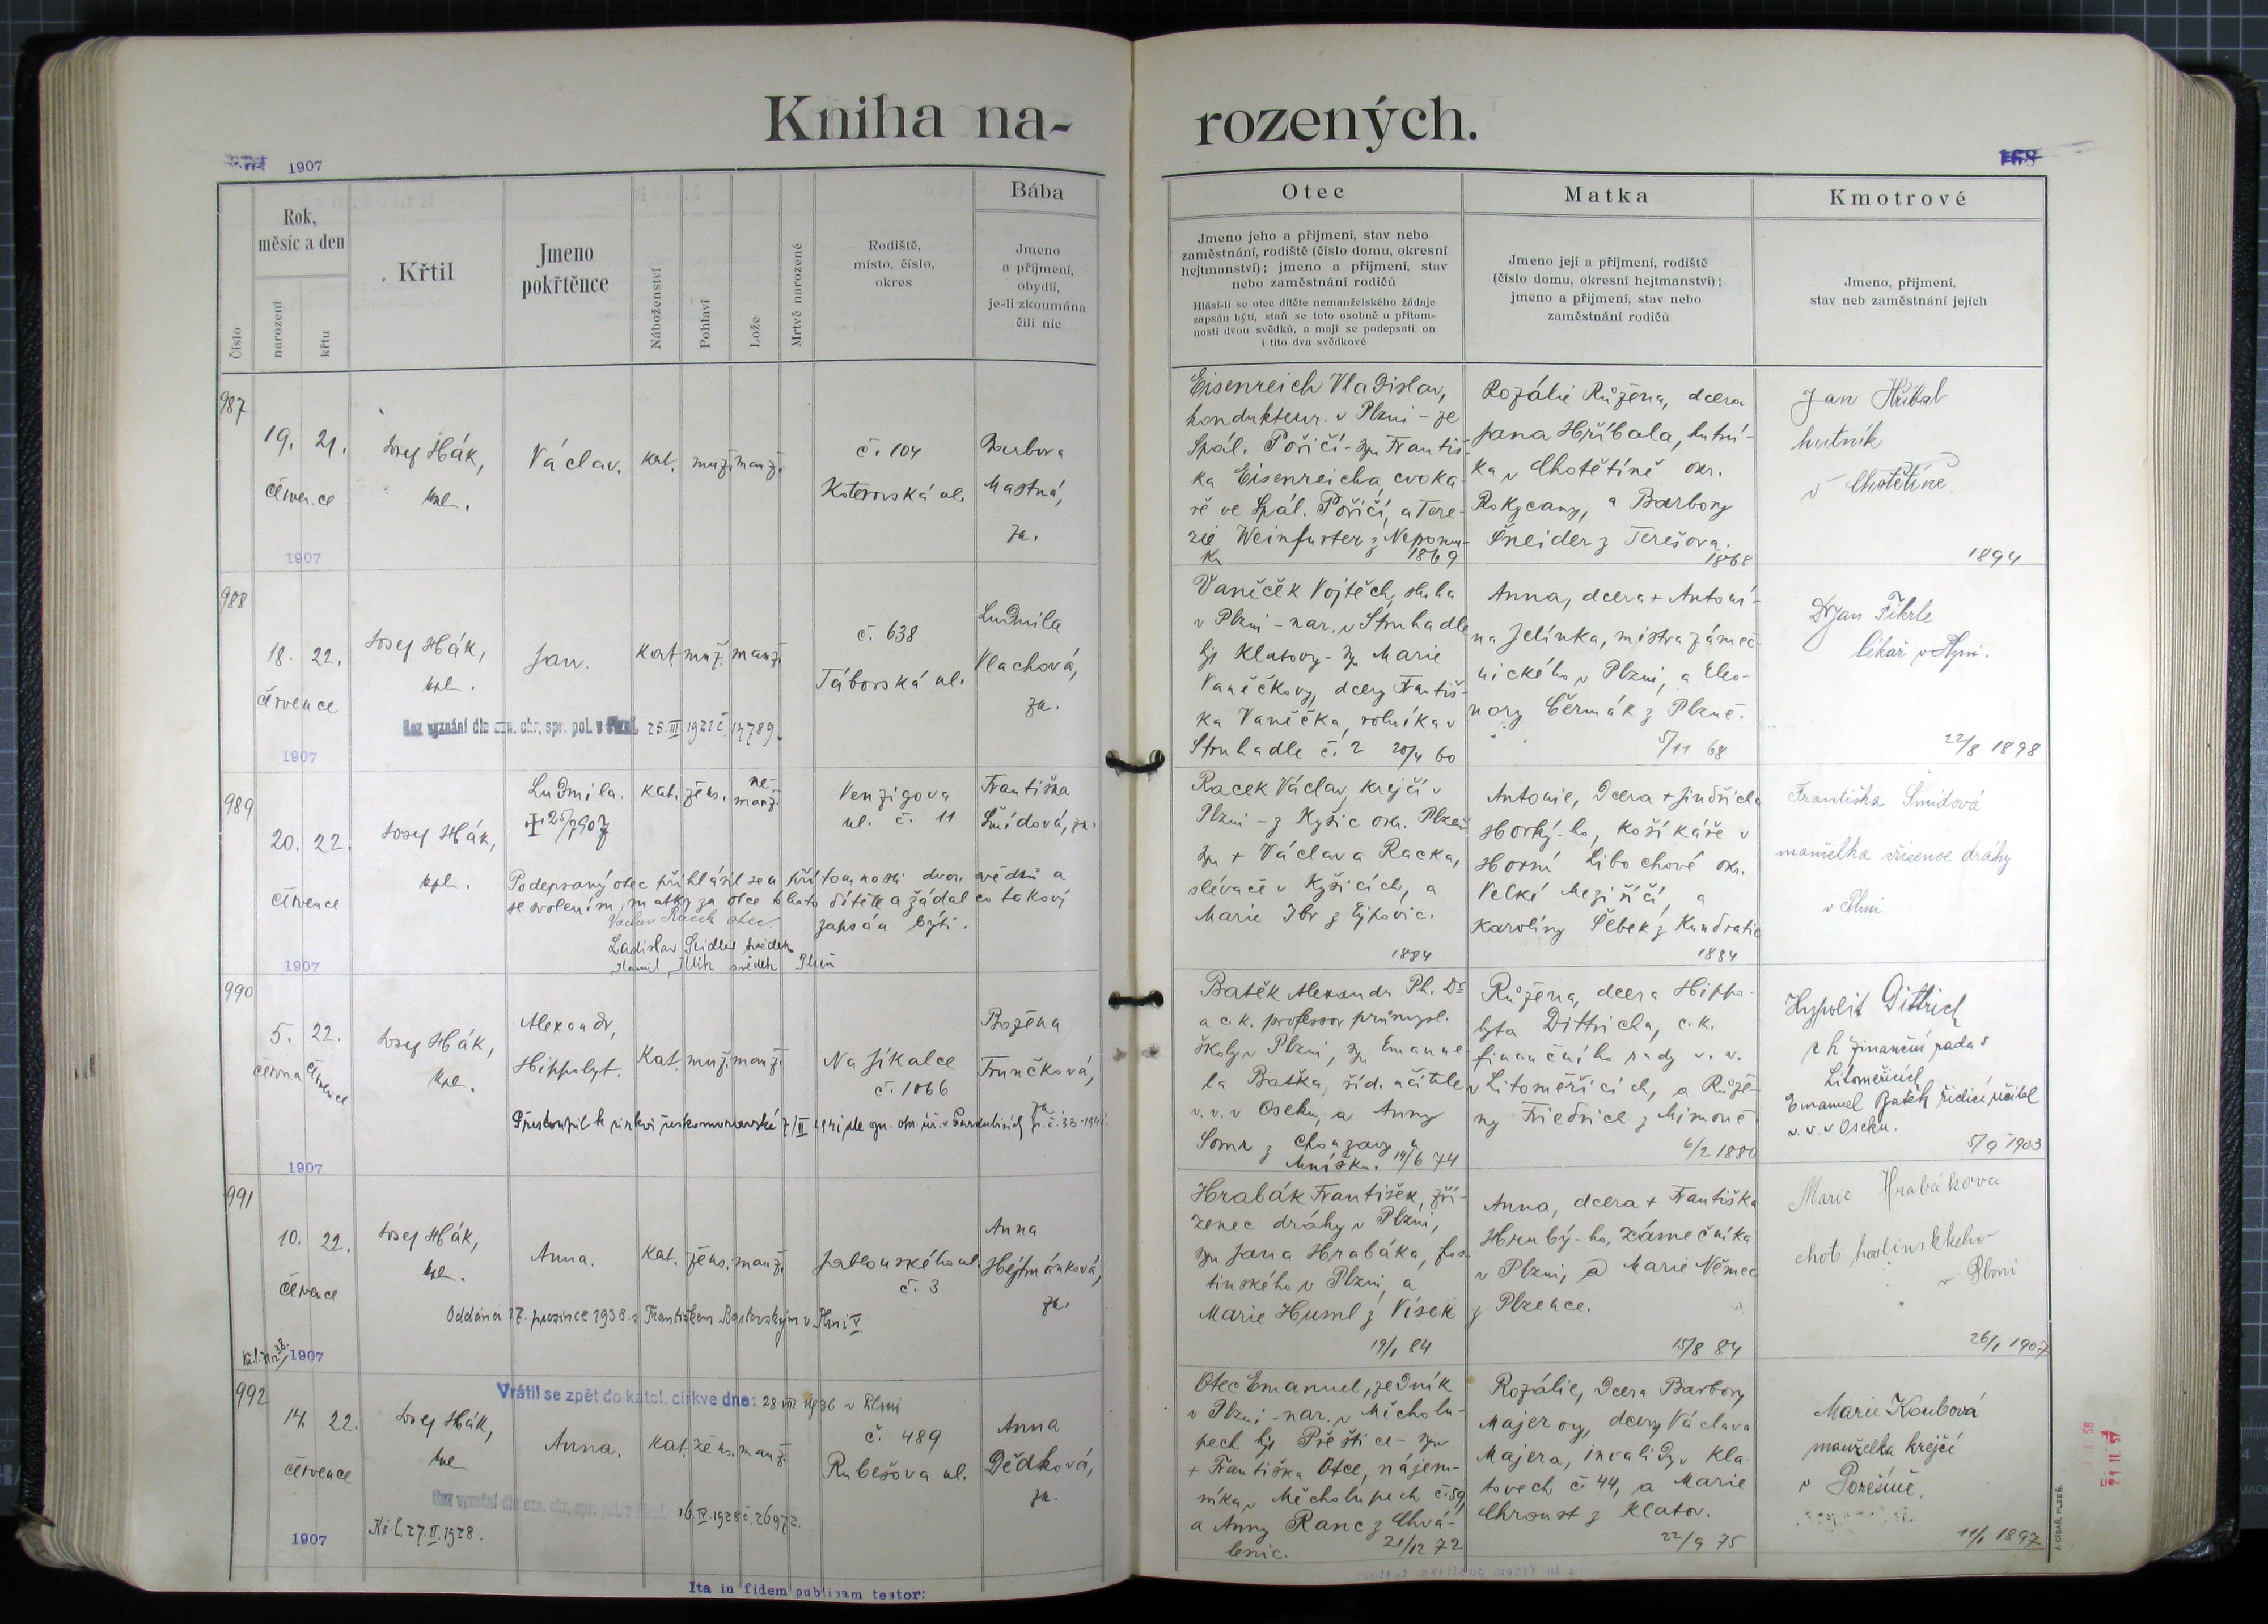 Kniha na-
rozených.
1907
168
Číslo
Rok,
měsíc a den
narození
křtu
Křtil
Jmeno
pokřtěnce
Náboženství
Pohlaví
Lože
Mrtvě narozené
Rodiště,
místo, číslo,
okres
Bába
Jmeno
a příjmení,
obydlí,
je-li zkoumána
čili nic
Otec
Jmeno jeho a příjmení, stav nebo
zaměstnání, rodiště (číslo domu, okresní
hejtmanství); jmeno a příjmení, stav
nebo zaměstnání rodičů
Hlásí-li se otec dítěte nemanželského žádaje
zapsán býti, staň se toto osobně u přítom-
nosti dvou svědků, a mají se podepsati on
i tito dva svědkové
Matka
Jmeno její a příjmení, rodiště
(číslo domu, okresní hejtmanství);
jmeno a příjmení, stav nebo
zaměstnání rodičů
Kmotrové
Jmeno, příjmení,
stav neb zaměstnání jejich
987
19. 21.
července
1907
Josef Hák,
kpl.
Václav.
kat. muž. manž.
č. 104
Koterovská ul.
Barbora
Mastná,
zk.
Eisenreich Vladislav,
kondukteur v Plzni - ze
Spál. Poříčí - syn Františ-
ka Eisenreicha cvoka-
ře ve Spál. Poříčí, a Tere-
zie Weinfurter z Nepomu-
ka 1869
Rozálie Růžena, dcera
Jana Hříbala, hutní-
ka v Chotětíně okr.
Rokycany, a Barbory
Šneider z Terešova.
1868
Jan Hříbal
hutník
v Chotětíně
1894
988
18. 22.
července
1907
Josef Hák,
kpl.
Jan.
Kat. muž. manž.
č. 638
Táborská ul.
Ludmila
Vlachová,
zk.
Bez vyznání dle ozn. okr. spr. pol. v Plzni 25.III.1921 č. 14789.
Vaněček Vojtěch, sluha
v Plzni - nar. v Struhadle
hjt Klatovy - syn Marie
Vaněčkovy, dcery Františ-
ka Vaněčka, rolníka v
Struhadle č. 2 20/4 60
Anna, dcera + Antoní-
na Jelínka, mistra zámeč-
nického v Plzni, a Eleo-
nory Čermák z Plzně.
5/11 68
Dr Jan Fikrle
lékař v Plzni.
22/8 1898
989
20. 22.
července
1907
Josef Hák,
kpl.
Ludmila.
+ 25/7 907
kat. žens. ne-
manž.
Venzigova
ul. č. 11
Františka
Šmídová, zk.
Podepsaný otec přihlásil se u přítomnosti dvou svědků a
se svolením matky za otce tohoto dítěte a žádal co takový
Václav Racek otec. zapsán býti.
Ladislav Seidler svědek
Kamil svědek Plzeň
Racek Václav, krejčí v
Plzni - z Kyšic okr. Plzeň
syn + Václava Racka,
slévače v Kyšicích, a
Marie Ibr z Ejpovic.
1884
Antonie, dcera + Jindřicha
Horký-ho, košíkáře v
Horní Libochové okr.
Velké Meziříčí, a
Karolíny Šebek z Kundratic
1884
Františka Šmídová
manželka zřízence dráhy
v Plzni
990
5. 22.
června července
1907
Josef Hák,
kpl.
Alexandr,
Hippolyt.
Kat. muž. manž.
Na Jíkalce
č. 1066
Božena
Trunčková,
zk.
Přestoupil k církvi českomoravské 7/II 1941 dle ozn. okr. úř. v Pardubicích č. 33-1941.
Batěk Alexandr Ph. Dr
a c.k. professor průmysl.
školy v Plzni, syn Emanue-
la Baťka, říd. učitele
v.v. v Oseku, a Anny
Somr z
Mníšku. 14/6 74
Růžena, dcera Hippo-
lyta Dittricha, c.k.
finančního rady v.v.
v Litoměřicích, a Růže-
ny Friedrich z Mimoně.
6/2 1880
Hypolit Dittrich
c k finanční rada v
Litoměřicích
Emanuel Batěk řídící učitel
v.v. v Oseku.
5/9 1903
991
10. 22.
července
1907
Josef Hák,
kpl.
Anna.
Kat. žens. manž.
Jablonského ul.
č. 3
Anna
Hejtmánková,
zk.
Oddána 17. prosince 1938 s Františkem Bartovským v Plzni V.
Hrabák František, zří-
zenec dráhy v Plzni,
syn Jana Hrabáka, hos-
tinského v Plzni, a
Marie Huml z Vísek
19/1 84
Anna, dcera + Františka
Hrubý-ho, zámečníka
v Plzni, a Marie Němec
z Plzence.
15/8 84
Marie Hrabákova
choť hostinského
v Plzni
26/1 1907
992
14. 22.
července
1907
Josef Hák,
kpl.
Vrátil se zpět do katol. církve dne: 28 VIII 1936 v Plzni
Anna.
Kat. žens. manž.
č. 489
Rubešova ul.
Anna
Dědková,
zk.
Bez vyznání dle ozn. okr. spr. pol. v Plzni 16.IV.1928 č. 26972.
Kř. l. 27.II.1928.
Otec Emanuel, zedník
v Plzni - nar. v Měcholu-
pech hjt Přeštice - syn
+ Františka Otce, nájem-
níka v Měcholupech č. 59,
a Anny Ranc z Chvá-
lenic. 21/12 72
Rozálie, dcera Barbory
Majerovy, dcery Václava
Majera, invalidy v Kla-
tovech č. 44, a Marie
Chroust z Klatov.
22/9 75
Marie Koubová
manželka krejčí
v
11/1 1897
Ita in fidem publicam testor:
21 II 57
J. CÍSAŘ, PLZEŇ.